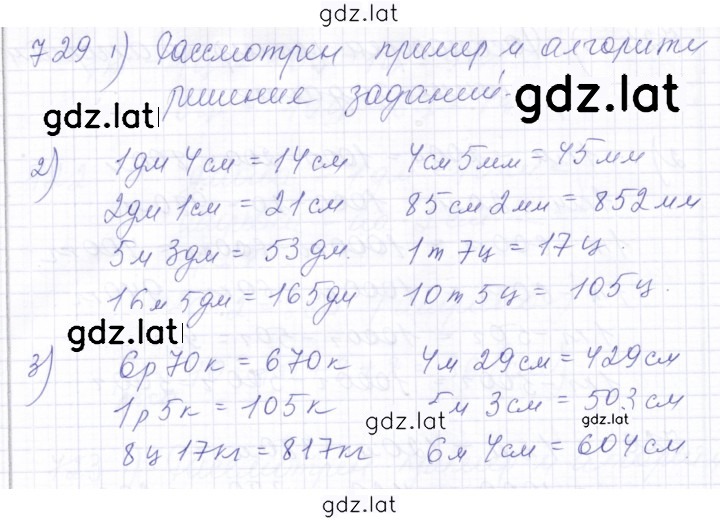 gdz.lat
729 1) Рассмотрен пример и алгоритм
решения заданий.
gdz.lat
gdz.lat
2) 1дм 4см = 14см 4см 5мм = 45мм
2дм 1см = 21см 85см 2мм = 852мм
5м 3дм = 53дм. 1т 7ц = 17ц.
16м 5дм = 165дм 10т 5ц = 105ц.
gdz.lat
3) 6р 70к = 670к 4м 29см = 429см
1р 5к = 105к 5м 3см = 503см
gdz.lat
gdz.lat
8ц 17кг = 817кг 6м 4см = 604см.
gdz.lat